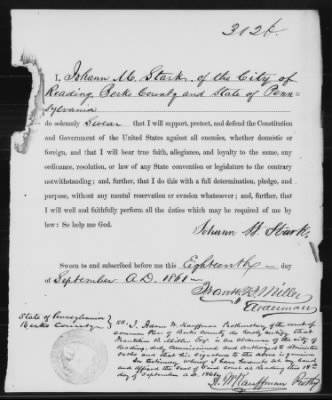 312
I, Johann M. Stark of the City of
Reading, Berks County and State of Penn=
sylvania
do solemnly Swear that I will support, protect, and defend the Constitution
and Government of the United States against all enemies, whether domestic or
foreign, and that I will bear true faith, allegiance, and loyalty to the same, any
ordinance, resolution, or law of any State convention or legislature to the contrary
notwithstanding; and, further, that I do this with a full determination, pledge, and
purpose, without any mental reservation or evasion whatsoever; and, further, that
I will well and faithfully perform all the duties which may be required of me by
law: So help me God.
Johann M. Stark
Sworn to and subscribed before me this Eighteenth day
of September A.D. 1861
Franklin B. Miller
Alderman
State of Pennsylvania
Berks County
SS. I, Adam W. Kauffman Prothonotary of the court of
common Pleas of Berks county do hereby certify that
Franklin B. Miller Esq. is an alderman of the city of
Reading, duly commissioned and authorized to administer
oaths and that his signature to the above is genuine
In testimony whereof I have hereunto set my hand
and affixed the seal of said Court at Reading this 18th
day of September A.D. 1861
A. W. Kauffman Prothy